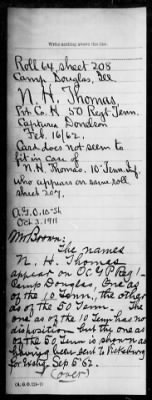 Write nothing above this line.
Roll 64, sheet 208
Camp Douglas, Ill
N. H. Thomas
Pvt. Co. H 50 Regt. Tenn.
Capture Donelson
Feb. 16/62.
Card does not seem to
fit in case of
N. H. Thomas, 10" Tenn. Inf.
who appears on same roll
sheet 207.
A.G.O.
Oct 3, 1911
Mr. Brown:
The names
N. H. Thomas
appear on
Camp Douglas, One as
of the 10 Tenn., the other
as of the 50 Tenn. The
one as of the 10 Tenn has no
disposition but the one as
of the 50 Tenn is shown as
having been sent to Vicksburg
for Exchg Sep 5" 62.
(over)